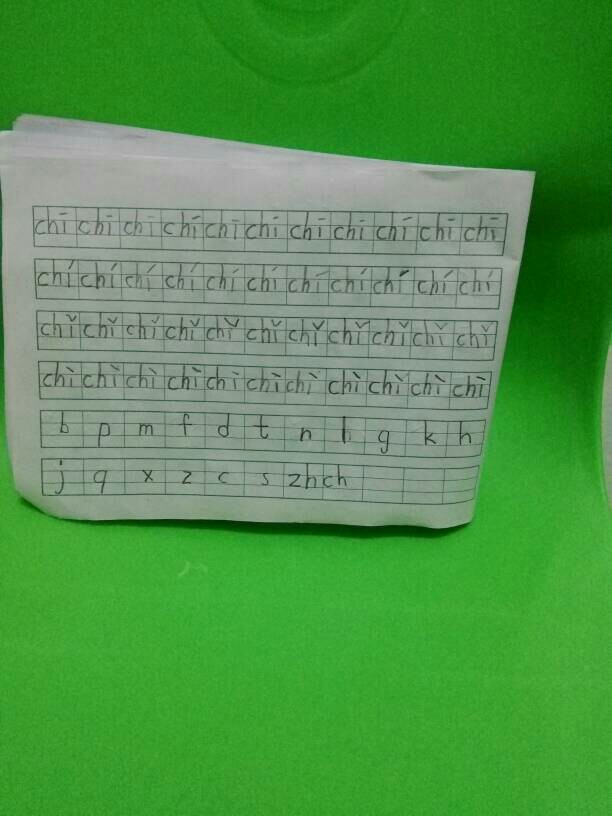 chī chī chī chī chī chī chī chī chī chī chī
chí chí chí chí chí chí chí chí chí chí chí
chǐ chǐ chǐ chǐ chǐ chǐ chǐ chǐ chǐ chǐ chǐ
chì chì chì chì chì chì chì chì chì chì chì
b p m f d t n l g k h
j q x z c s zh ch